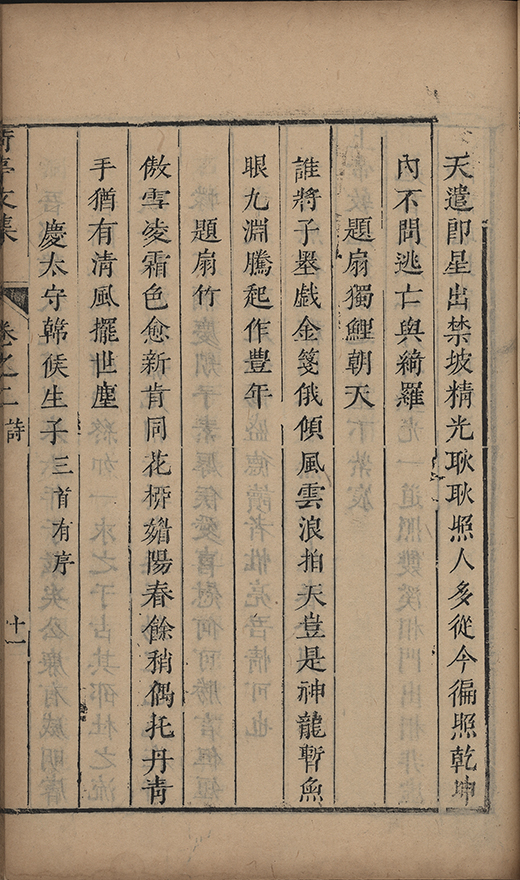 天遣郎星出禁坡精光耿耿照人多從今徧照乾坤
內不問逃亡與綺羅
題扇獨鯉朝天
誰將子墨戲金箋俄傾風雲浪拍天豈是神龍暫魚
眼九淵騰起作豊年
題扇竹
傲雪凌霜色愈新肯同花柳媚陽春餘稍偶托丹青
手猶有清風擺世塵
慶太守韓侯生子三首有序
文集
卷之二 詩 十一